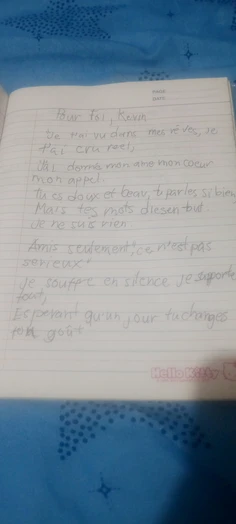 Pour toi, Kevin
Je t'ai vu dans mes rêves, je
t'ai cru reel,
J'ai donné mon ame mon coeur
mon appel.
Tu es doux et beau, tu parles si bien
Mais tes mots disent tout
Je ne suis rien
Amis seulement, ce n'est pas
serieux!
Je souffre en silence Je supporte
tout,
Esperant qu'un jour tu changes
ton goût
Hello Kitty